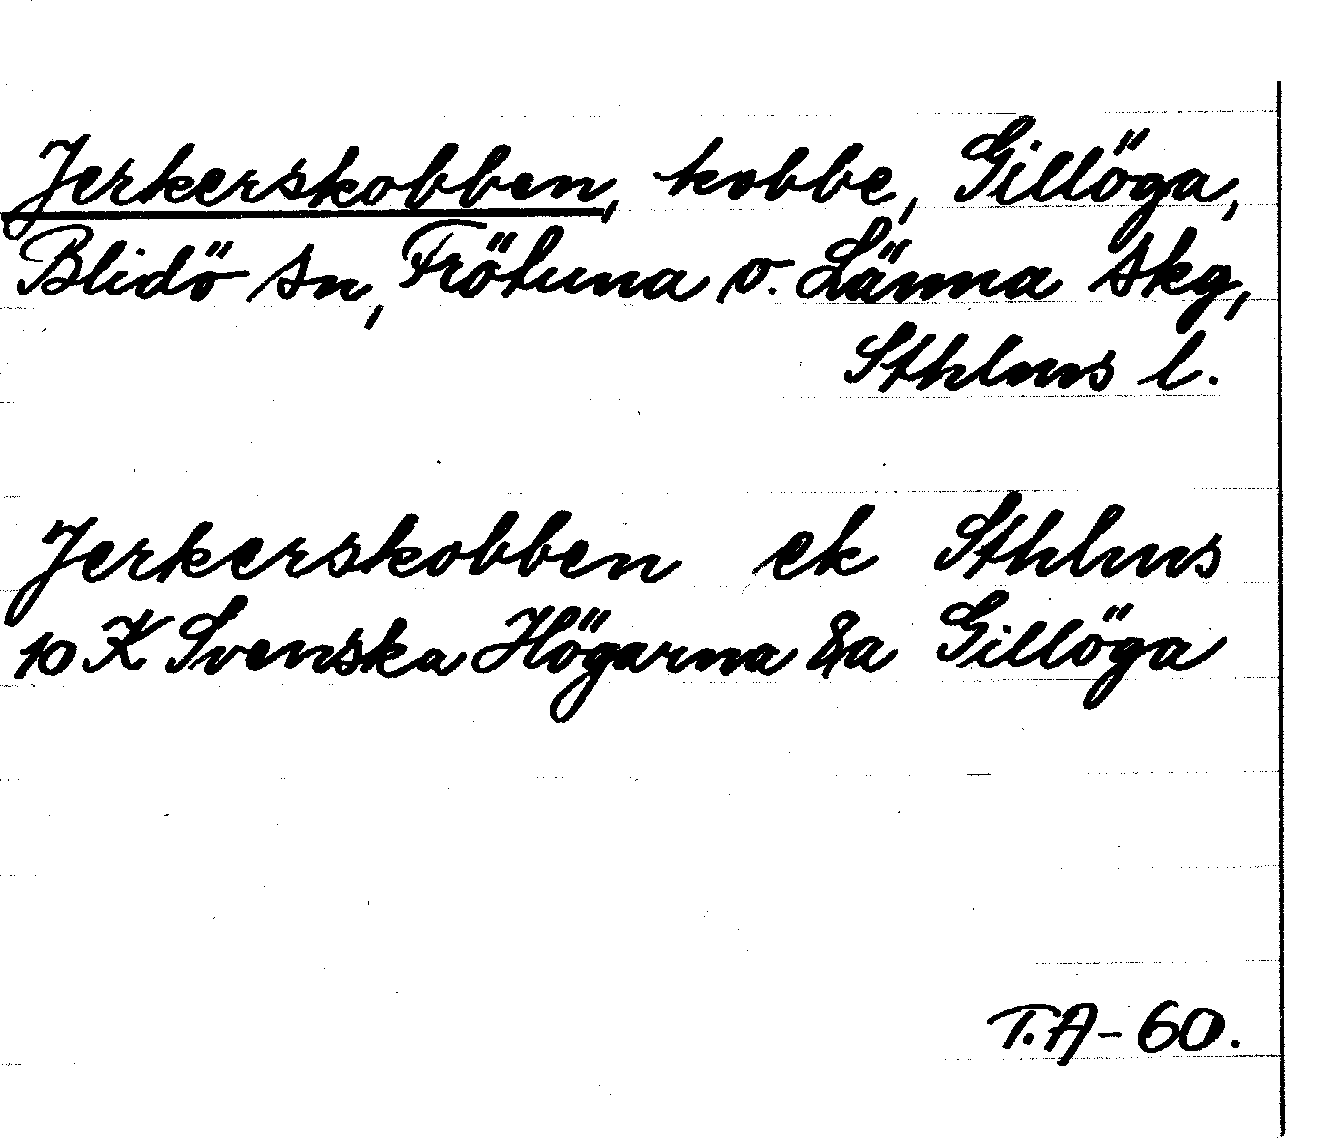 Jerkerskobben, kobbe, Gillöga,
Blidö sn, Frötuna o. Länna skg,
Sthlms l.
Jerkerskobben ek Sthlms
10 K Svenska Högarna &a Gillöga
T.A-60.